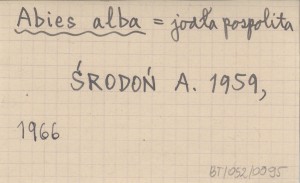 Abies alba = jodła pospolita
ŚRODOŃ A. 1959,
1966
BT/052/0095